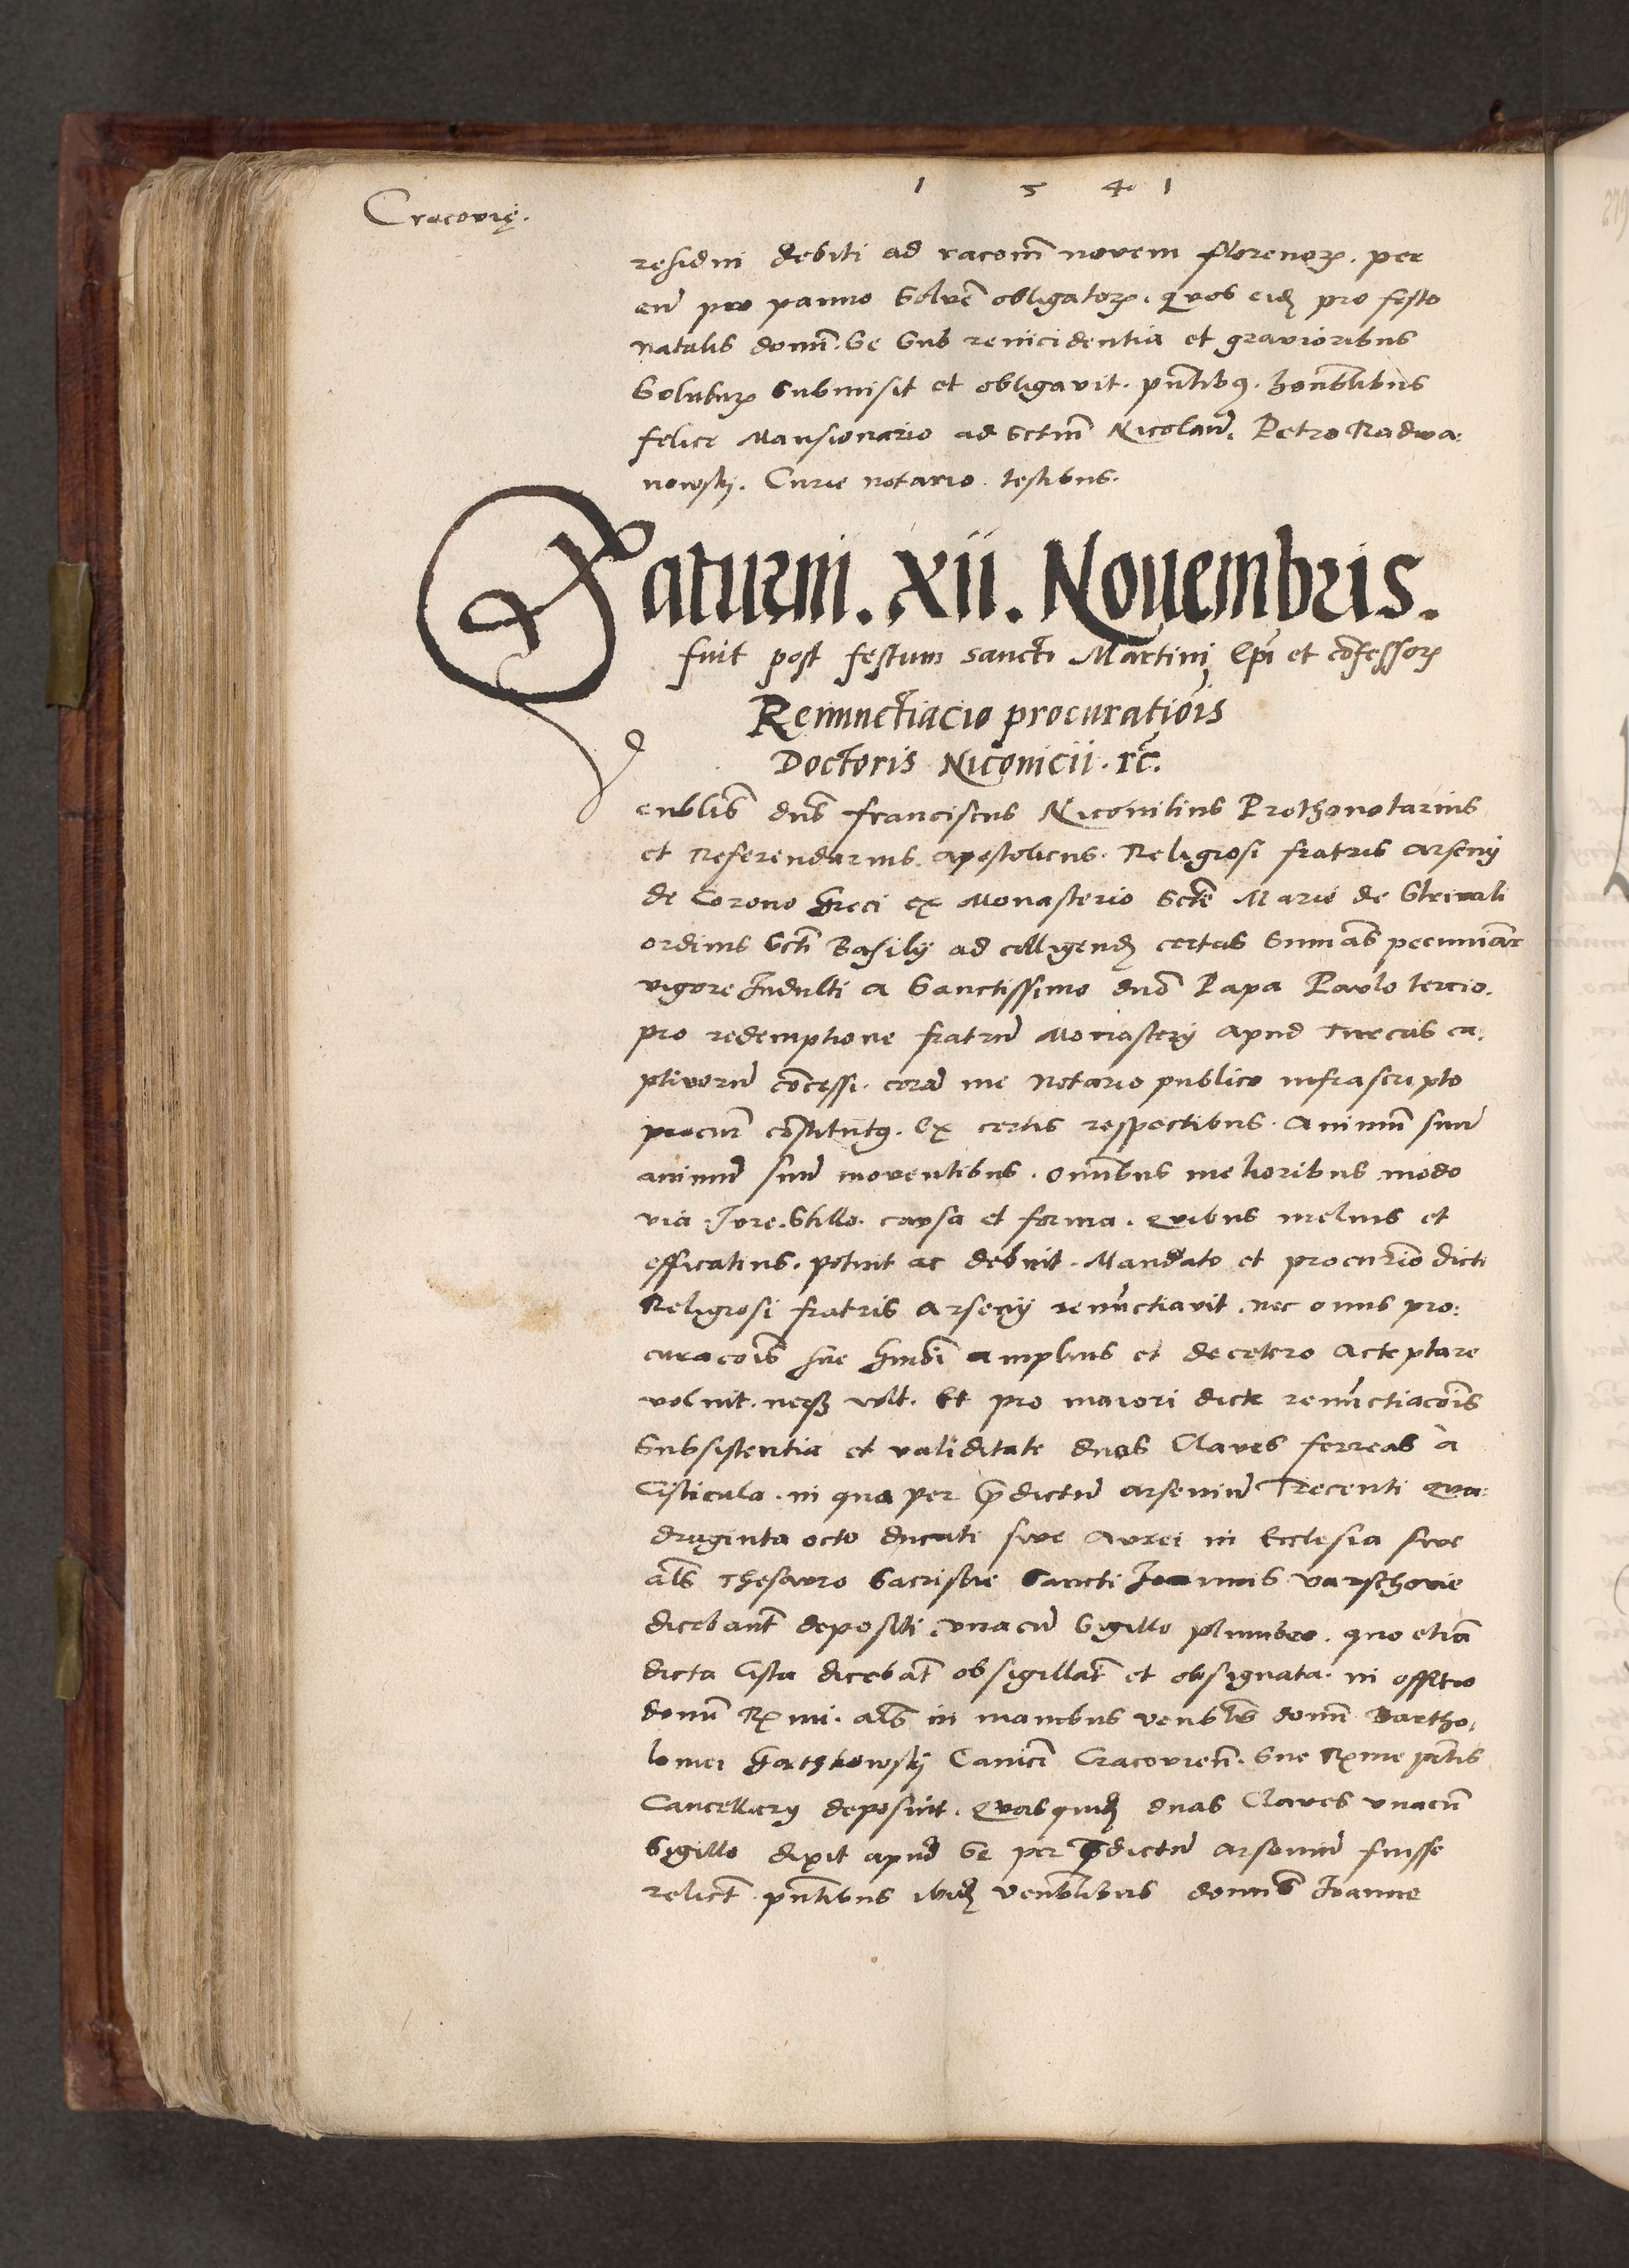 1 5 4 1
Cracovię.
residui debiti ad racom̄ novem florenorꝝ. per
eūm pro panno Solvē obligatorꝝ. quos eidꝫ pro festo
Natalis domī. Se Sub reincidentia et gravioribus
Solutuꝝ submisit et obligavit. pn̄tibꝯ. honblibus
felice Mansionario ad Sctm̄ Nicolaū. Petro Radwa:
nowskj. Curie notario. testibus.
Saturni. xii. Nouembris.
fuit post festum sancti Martini Epī et cōfessorꝭ
Renunctiacio procuratiōis
Doctoris Niconicii. rc̄.
enblis dn̄s franciscus Niconitius Prothonotarius
et Referendarius. apostolicus. Religiosi fratris arsenij
de Corono Greci ex Monasterio Sctē Marie de
ordinis Sctī Basilij ad colligendꝫ certas Sum̄as pecuniar̄
vigore Indulti a Sanctissimo dn̄o Papa Paulo tercio.
pro redemptione fratrū Monasterij apud Turcas ca:
ptivorū cōcessi. corā me Notario publico infrascripto
procur̄ cōstitutꝯ. Ex certis respectibus. Animū suū
animū suū moventibus. om̄ibus melioribus modo
via. Jure. Stillo. causa et forma. Quibus melius et
efficatius. potuit ac debuit. Mandato et procurōi dicti
Religiosi fratris arsenij renūctiavit. nec onus pro:
curacōis hūiusmodi amplius et decetero acceptare
voluit. neqꝫ vult. Et pro maiori dicte renūctiacōis
Subsistentia et validitate duas Claves ferreas a
Cisticula. in qua per p̄dictū arseniū Trecenti Qua:
draginta octo ducati sive Aurei in Ecclesia sive
al̄s Thesauro Sacristie Sancti Joannis Varschovie
dicebant̄ depositi. vnacū Sigillo plumbeo. quo etiā
dicta Cista dicebat̄ obsigillat̄ et obsignata. in offitio
domī Rx̄mi. al̄s in manibus venblis domī Bartho,
lomei Gatzkowskj Canici Cracovień. Sue Rx̄me ptīs
Cancellarij deposuit. Quas quidꝫ duas Claves vnacū
Sigillo dixit apud Se per p̄dictū arseniū fuisse
relict̄ pn̄tibus ibidꝫ venblibus domīs Joanne